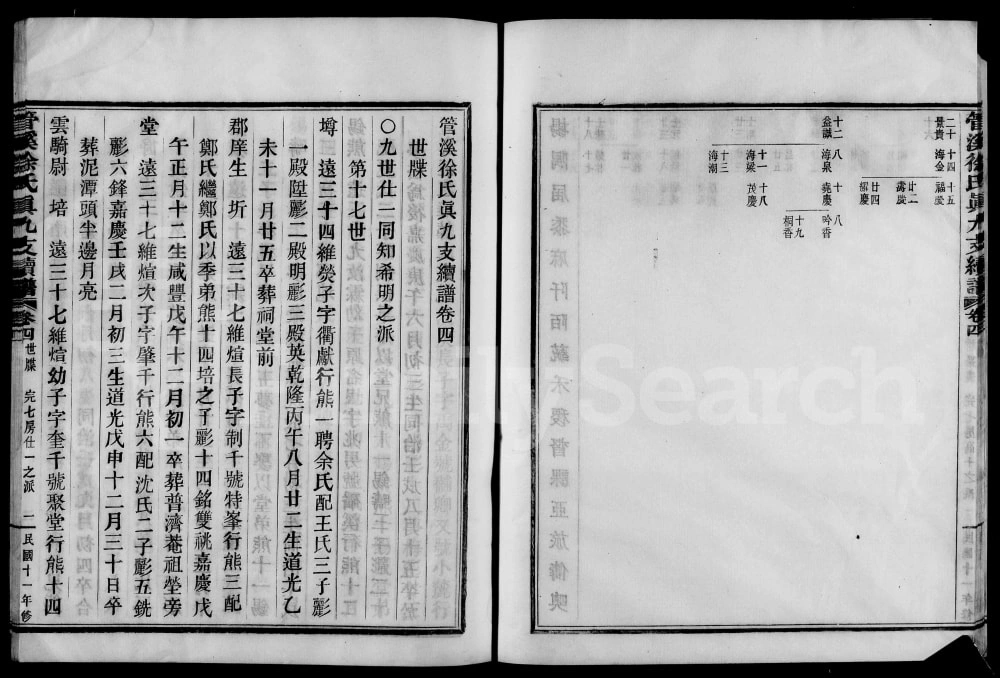 管溪徐氏眞九支續譜 卷四
二十 十四 十五
景貴 海金 福慶
廿二
壽慶
廿四
耀慶
十二 八 十 八
益謀 海泉 堯慶 吟香
十九
桐香
十一 十八
海粱 茂慶
十三
海潮
管溪徐氏眞九支續譜卷四
世牒
〇九世仕二同知希明之派
第十七世
墫 三 遠三十四維熒子字衢獻行熊一聘余氏配王氏三子彲
一殿陞彲二殿明彲三殿英乾隆丙午八月廿二生道光乙
未十一月廿五卒葬祠堂前
郡庠生 圻 十 遠三十七維煊長子字制千號特峯行熊三配
鄭氏繼鄭氏以季弟熊十四培之子彲十四銘雙祧嘉慶戊
午正月十二生咸豐戊午十二月初一卒葬普濟菴祖塋旁
堂 遠三十七維煊次子字肇千行熊六配沈氏二子彲五銑
彲六鋒嘉慶壬戌二月初三生道光戊申十二月三十日卒
葬泥潭頭半邊月亮
雲騎尉 培 遠三十七維煊幼子字奎千號聚堂行熊十四
管溪徐氏眞九支續譜 卷四 世牒 完七房仕一之派 二 民國十一年修
FamilySearch